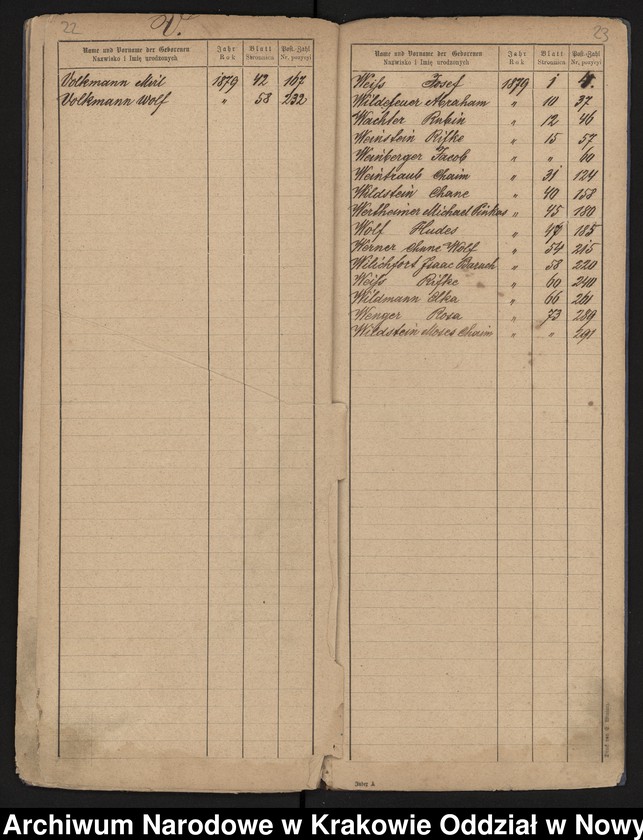 22
V.
Name und Vorname der Geborenen
Nazwisko i Imię urodzonych
Jahr
Rok
Blatt
Stronnica
Post-Zahl
Nr. pozycyi
Volkmann Meil 1879 42 167
Volkmann Wolf " 58 232
23
Name und Vorname der Geborenen
Nazwisko i Imię urodzonych
Jahr
Rok
Blatt
Stronnica
Post-Zahl
Nr. pozycyi
Weiss Josef 1879 1 4.
Wildefeuer Abraham " 10 37
Wachter Rubin " 12 46
Weinstein Rifke " 15 57
Weinberger Jacob " " 60
Weintraub Chaim " 31 124
Wildstein Chane " 40 158
Wertheimer Michael Pinkas " 45 180
Wolf Hudes " 47 185
Werner Chane Wolf " 54 215
Wilichfort Isaac Barach " 58 220
Weiss Rifke " 60 240
Wildmann Elka " 66 261
Wenger Rosa " 73 289
Wildstein Moses Chaim " " 291
Index A
Archiwum Narodowe w Krakowie Oddział w Nowy